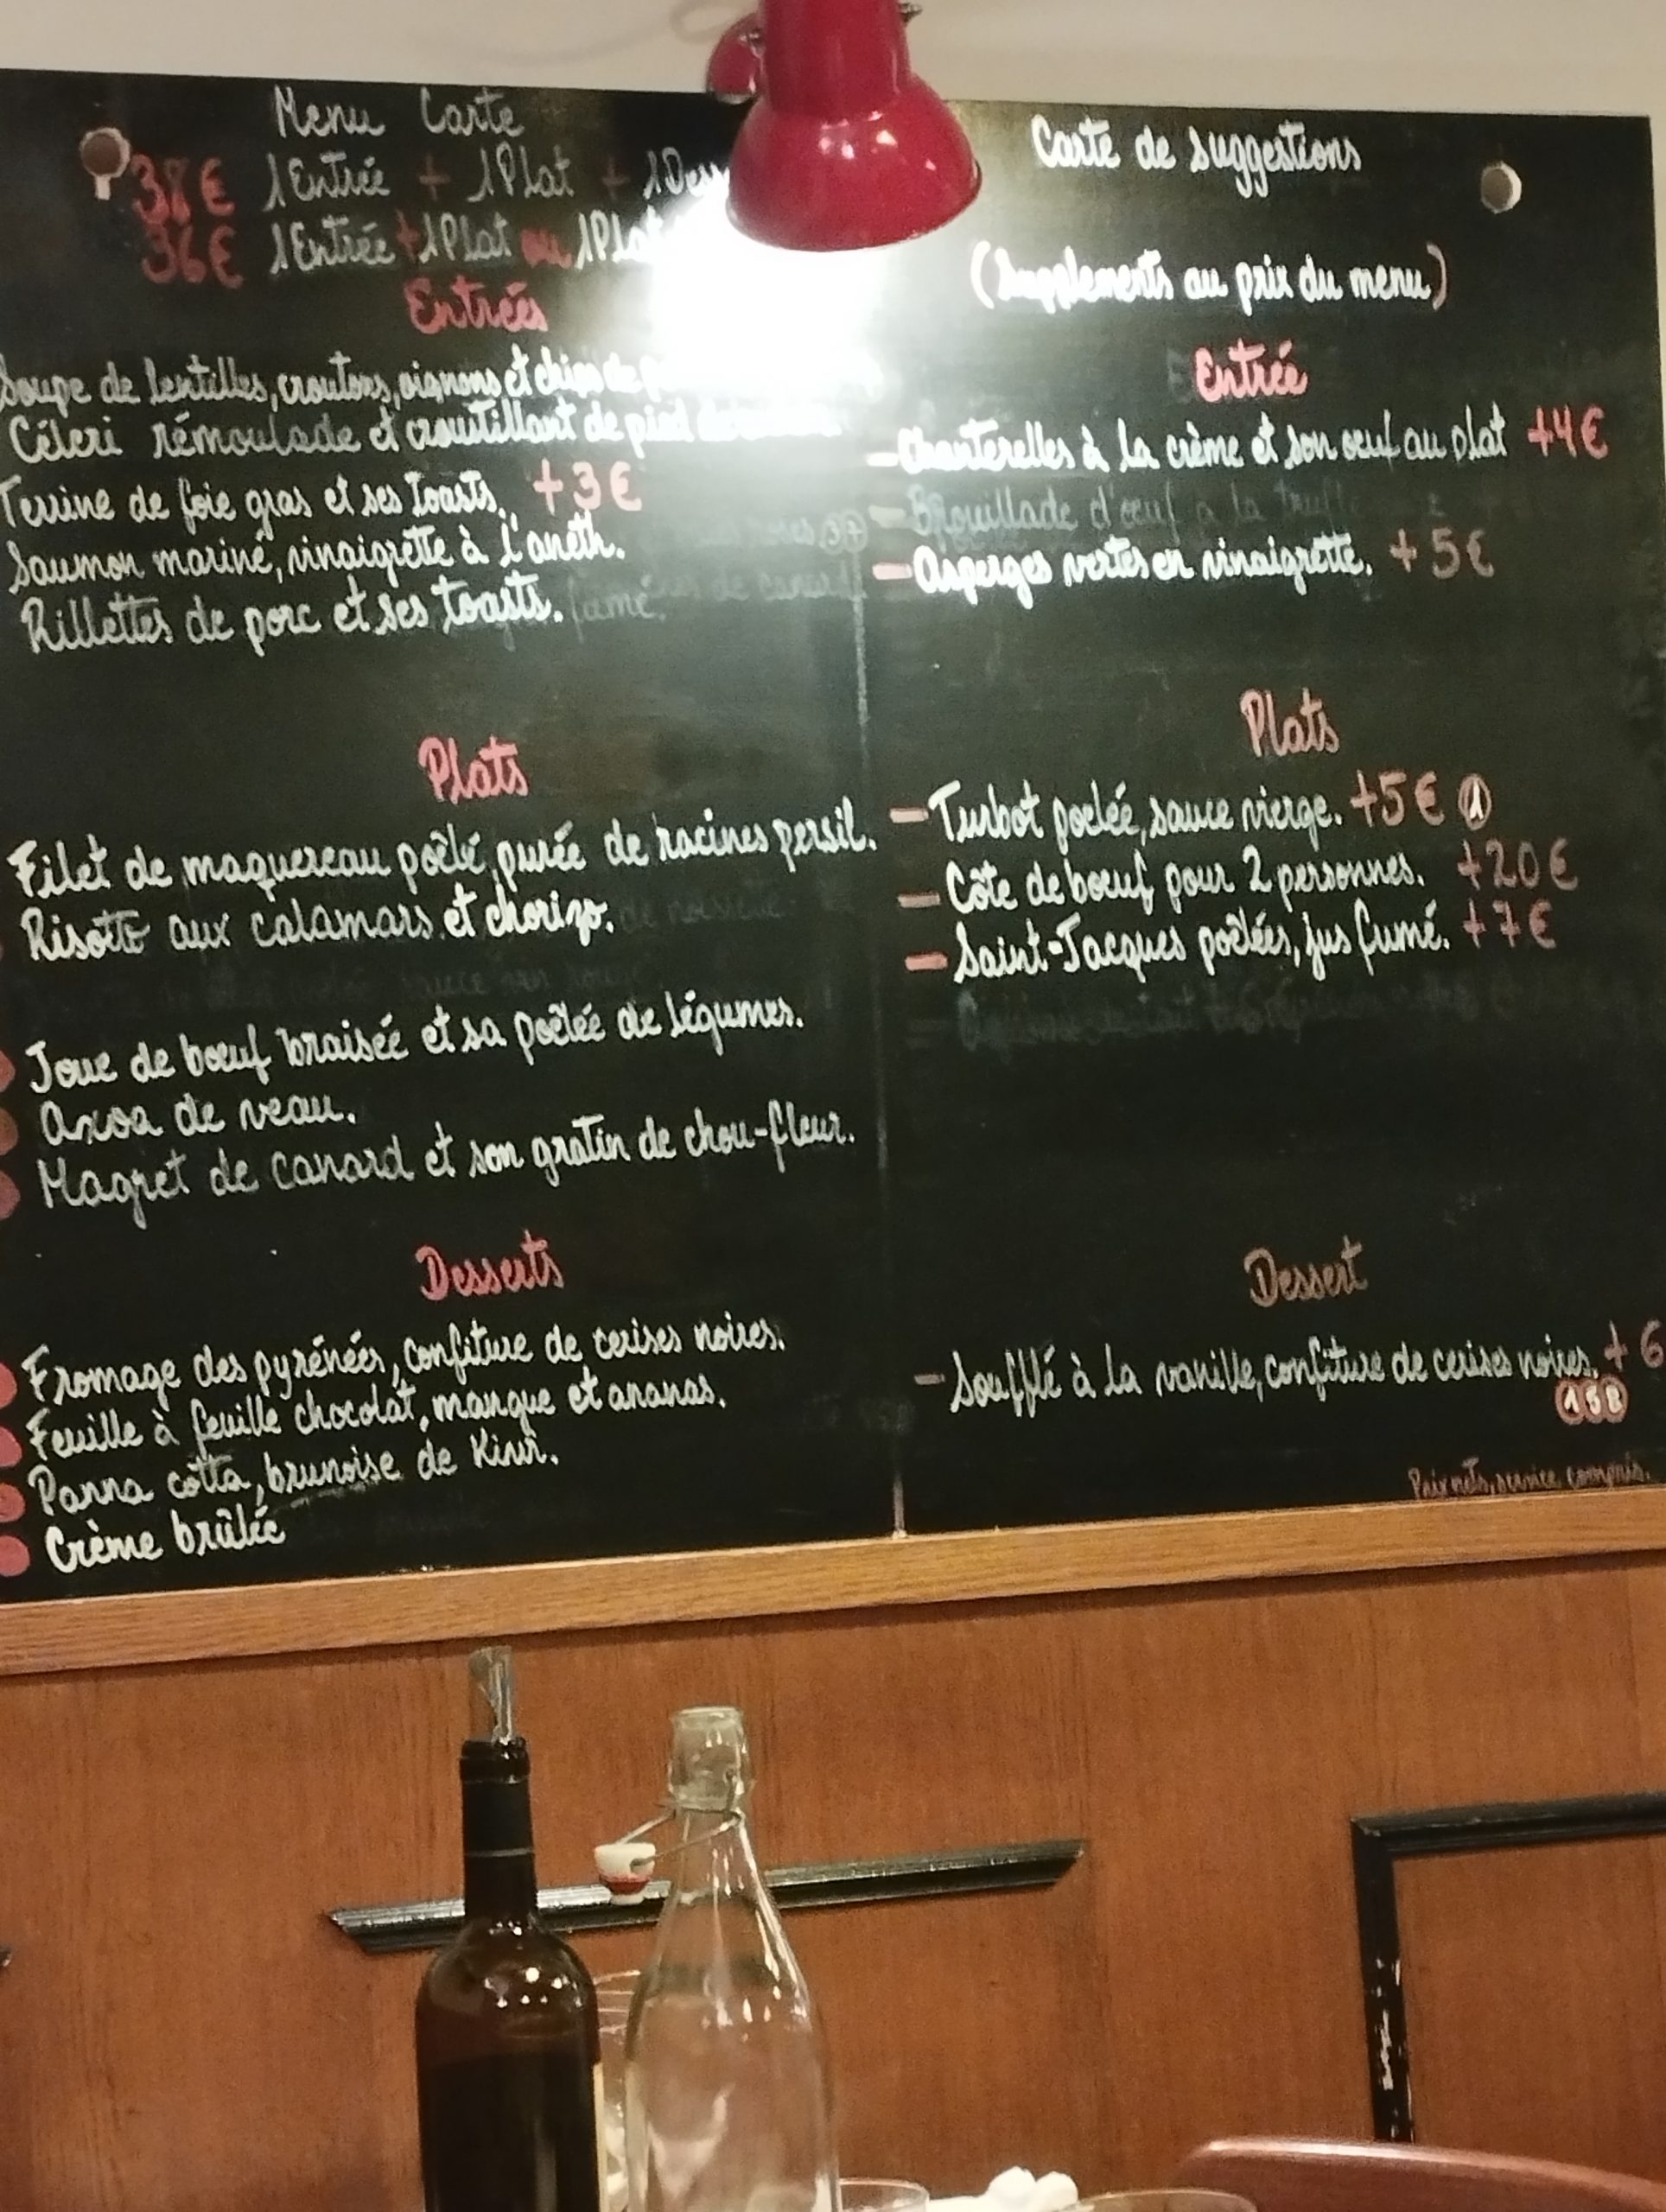 Menu Carte
38€ 1 Entrée + 1 Plat + 1
36€ 1 Entrée + 1 Plat ou 1
Entrées
Soupe de lentilles, croutons, oignons et chips de
Céleri rémoulade et croustillant de pied de
Terrine de foie gras et ses toasts. +3€
Saumon mariné, vinaigrette à l'aneth.
Rillettes de porc et ses toasts.
Plats
Filet de maquereau poêlé, purée de racines persil.
Risotto aux calamars et chorizo.
Joue de boeuf braisée et sa poêlée de légumes.
Axoa de veau.
Magret de canard et son gratin de chou-fleur.
Desserts
Fromage des pyrénées, confiture de cerises noires.
Feuille à feuille chocolat, mangue et ananas.
Panna cotta, brunoise de Kiwi.
Crème brûlée
Carte de suggestions
(Supplements au prix du menu)
Entrée
- Chanterelles à la crème et son oeuf au plat +4€
- Brouillade d'oeuf à la truffe
- Asperges vertes en vinaigrette. +5€
Plats
- Turbot poelée, sauce vierge. +5€ 1
- Côte de boeuf pour 2 personnes. +20€
- Saint-Jacques poêlées, jus fumé. +7€
Dessert
- Soufflé à la vanille, confiture de cerises noires. + 6
Prix nets, service compris.